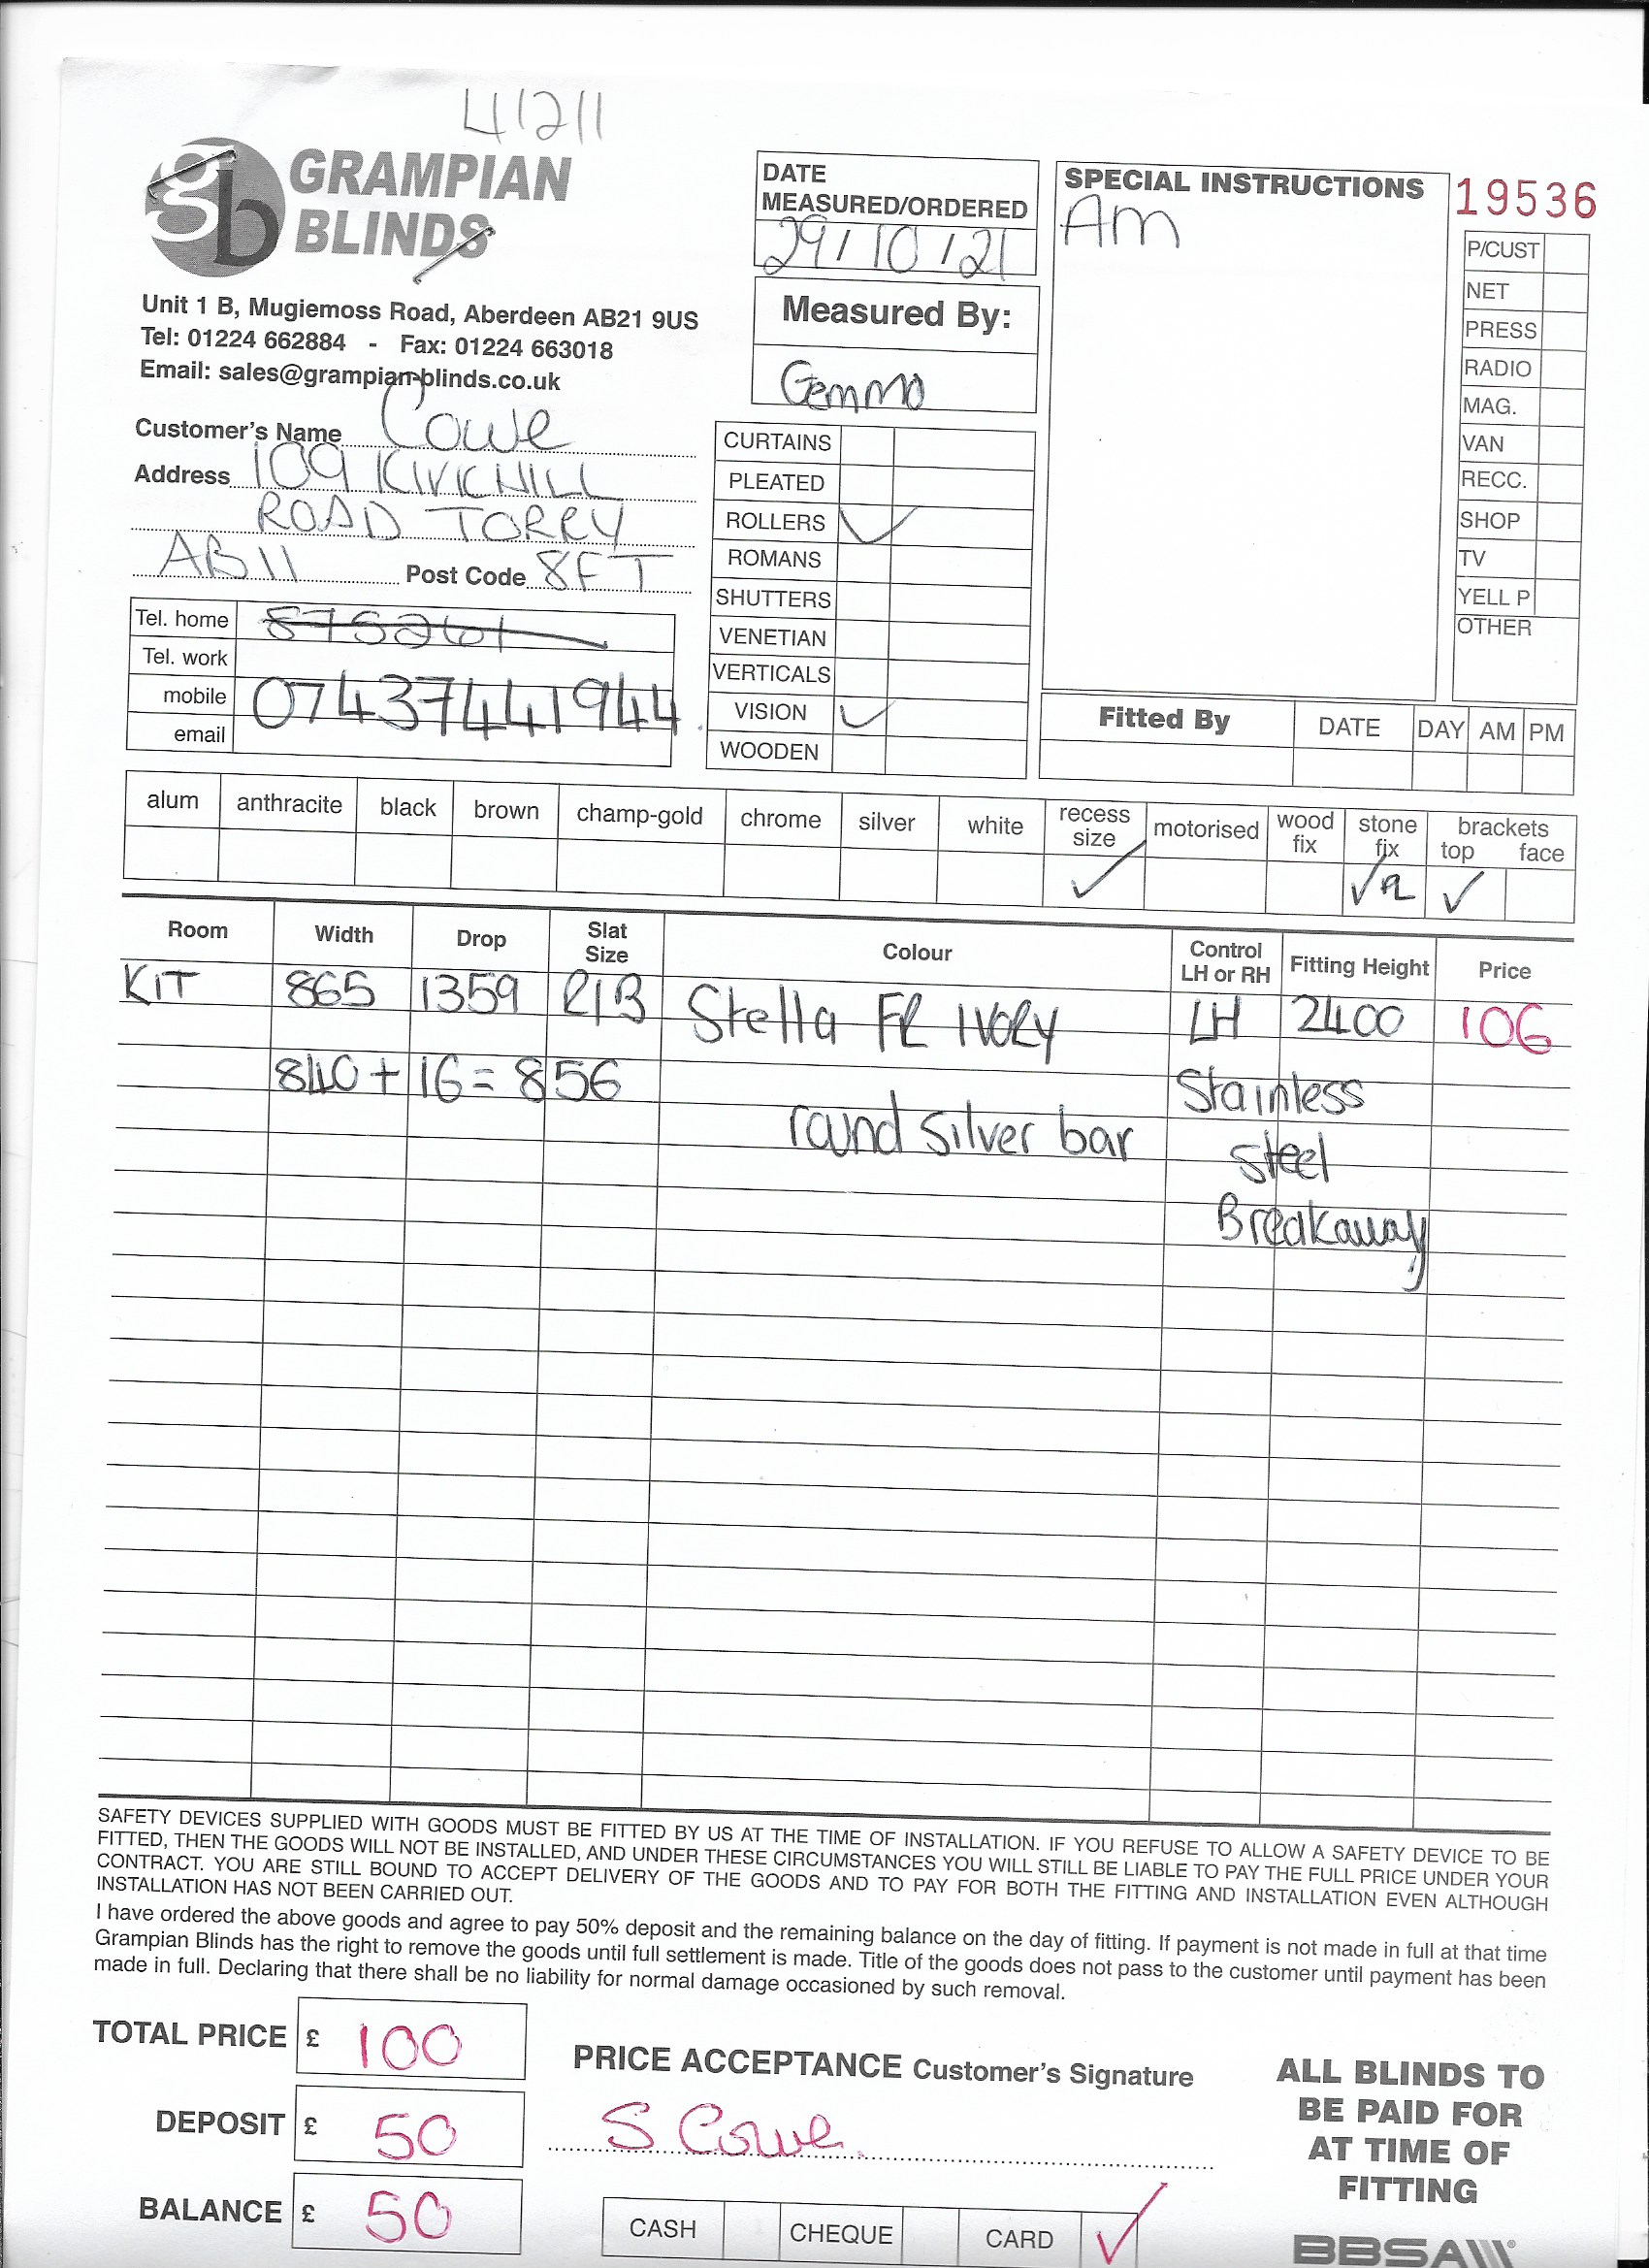 41211
gb GRAMPIAN
BLINDS
Unit 1 B, Mugiemoss Road, Aberdeen AB21 9US
Tel: 01224 662884 - Fax: 01224 663018
Email: sales@grampian-blinds.co.uk
Customer's Name Cowe
Address 109 KIRKHILL
ROAD TORRY
AB11 Post Code 8FT
Tel. home 875261
Tel. work
mobile 07437441944
email
DATE
MEASURED/ORDERED
29/10/21
Measured By:
Gemma
CURTAINS
PLEATED
ROLLERS ✓
ROMANS
SHUTTERS
VENETIAN
VERTICALS
VISION ✓
WOODEN
SPECIAL INSTRUCTIONS
Am
19536
P/CUST
NET
PRESS
RADIO
MAG.
VAN
RECC.
SHOP
TV
YELL P
OTHER
Fitted By DATE DAY AM PM
alum anthracite black brown champ-gold chrome silver white recess size motorised wood fix stone fix brackets top face
✓ ✓ ✓
Room Width Drop Slat Size Colour Control LH or RH Fitting Height Price
KIT 865 1359 R/B Stella FR IVORY LH 2400 106
840 + 16 = 856 Stainless
round silver bar steel
Breakaway
SAFETY DEVICES SUPPLIED WITH GOODS MUST BE FITTED BY US AT THE TIME OF INSTALLATION. IF YOU REFUSE TO ALLOW A SAFETY DEVICE TO BE
FITTED, THEN THE GOODS WILL NOT BE INSTALLED, AND UNDER THESE CIRCUMSTANCES YOU WILL STILL BE LIABLE TO PAY THE FULL PRICE UNDER YOUR
CONTRACT. YOU ARE STILL BOUND TO ACCEPT DELIVERY OF THE GOODS AND TO PAY FOR BOTH THE FITTING AND INSTALLATION EVEN ALTHOUGH
INSTALLATION HAS NOT BEEN CARRIED OUT.
I have ordered the above goods and agree to pay 50% deposit and the remaining balance on the day of fitting. If payment is not made in full at that time
Grampian Blinds has the right to remove the goods until full settlement is made. Title of the goods does not pass to the customer until payment has been
made in full. Declaring that there shall be no liability for normal damage occasioned by such removal.
TOTAL PRICE £ 100
DEPOSIT £ 50
BALANCE £ 50
PRICE ACCEPTANCE Customer's Signature
S Cowe
CASH CHEQUE CARD ✓
ALL BLINDS TO
BE PAID FOR
AT TIME OF
FITTING
BBSA